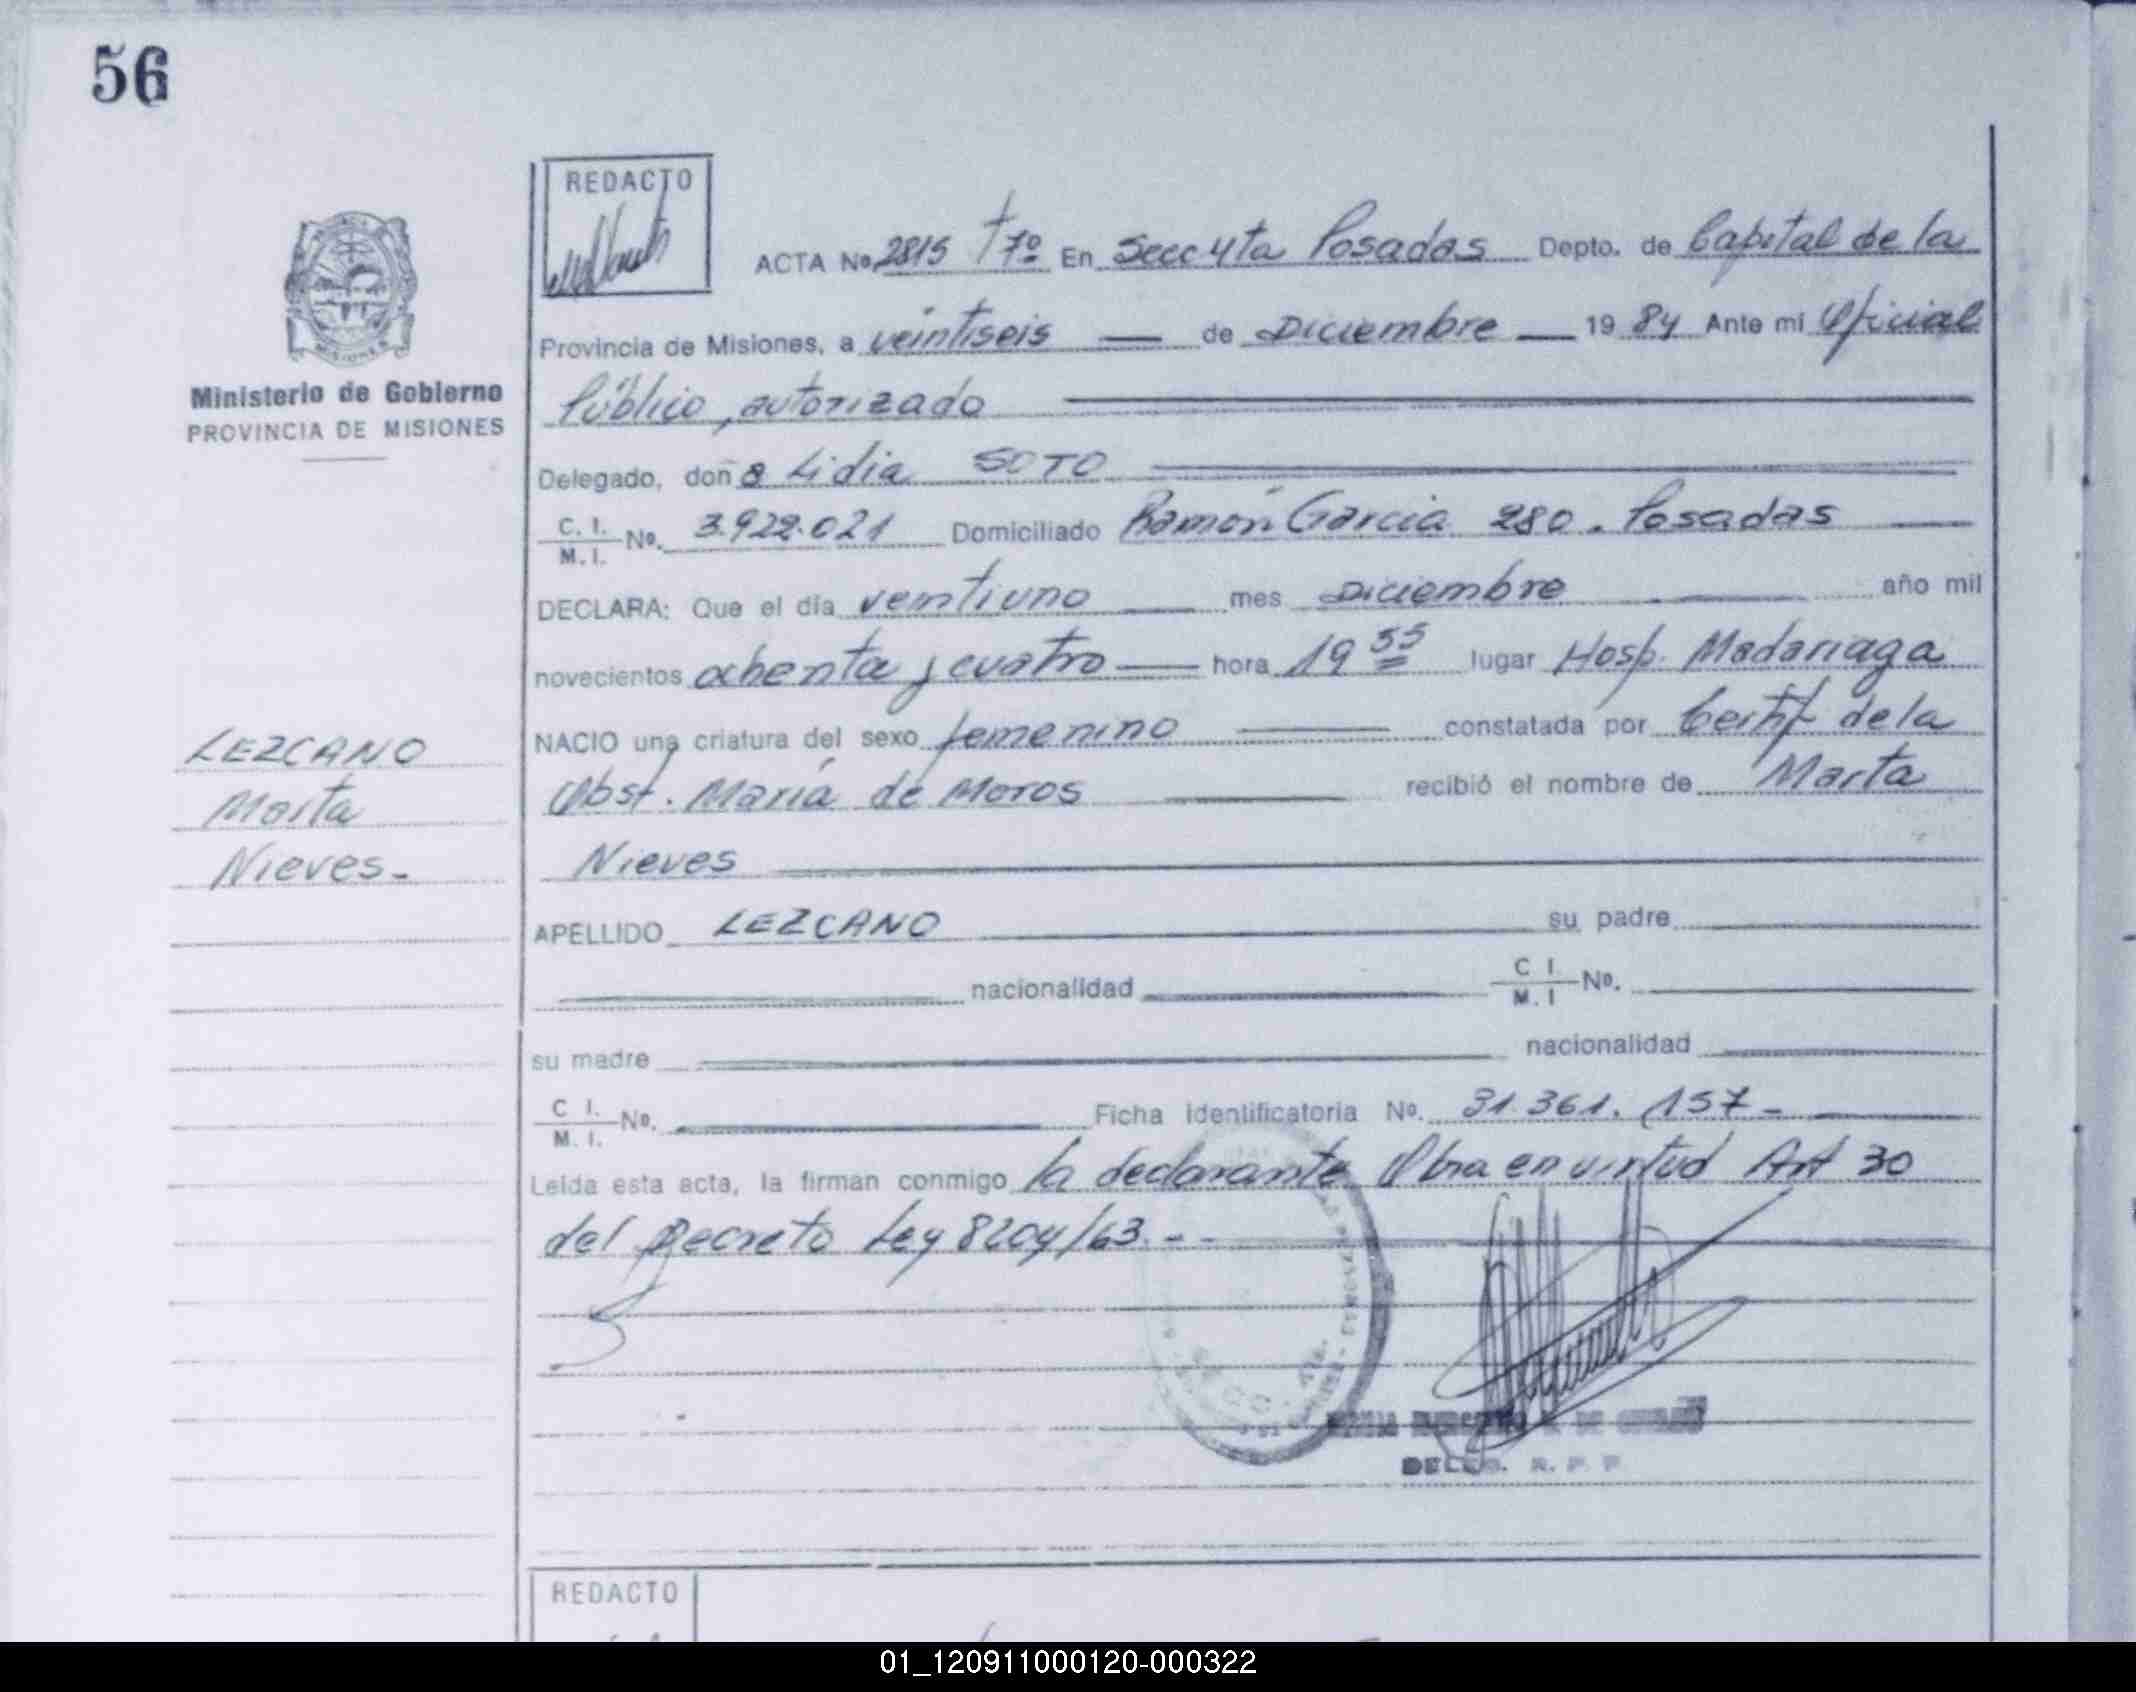 56
REDACTO
ACTA No 2815 T 7º En Secc 4ta Posadas Depto. de Capital de la
Provincia de Misiones, a veintiseis de Diciembre 19 84 Ante mi Oficial
Público, autorizado
Delegado, doña Lidia SOTO
C. I. / M. I. Nº. 3.922.021 Domiciliado Ramón Garcia 280. Posadas
DECLARA: Que el día veintiuno mes Diciembre año mil
novecientos ochenta y cuatro hora 19 55 lugar Hosp. Madariaga
NACIO una criatura del sexo femenino constatada por Certif de la
Obst. María de Moros recibió el nombre de Marta
Nieves
APELLIDO LEZCANO su padre
nacionalidad C I. / M. I Nº.
su madre nacionalidad
C I. / M. I. Nº. Ficha Identificatoria Nº. 31.361.157-
Leida esta acta, la firman conmigo la declarante Obra en virtud Art 30
del Decreto Ley 8204/63.--
SECC. 4ta.
DELEG. R. P. P.
Ministerio de Gobierno
PROVINCIA DE MISIONES
LEZCANO
Marta
Nieves-
REDACTO
01_120911000120-000322